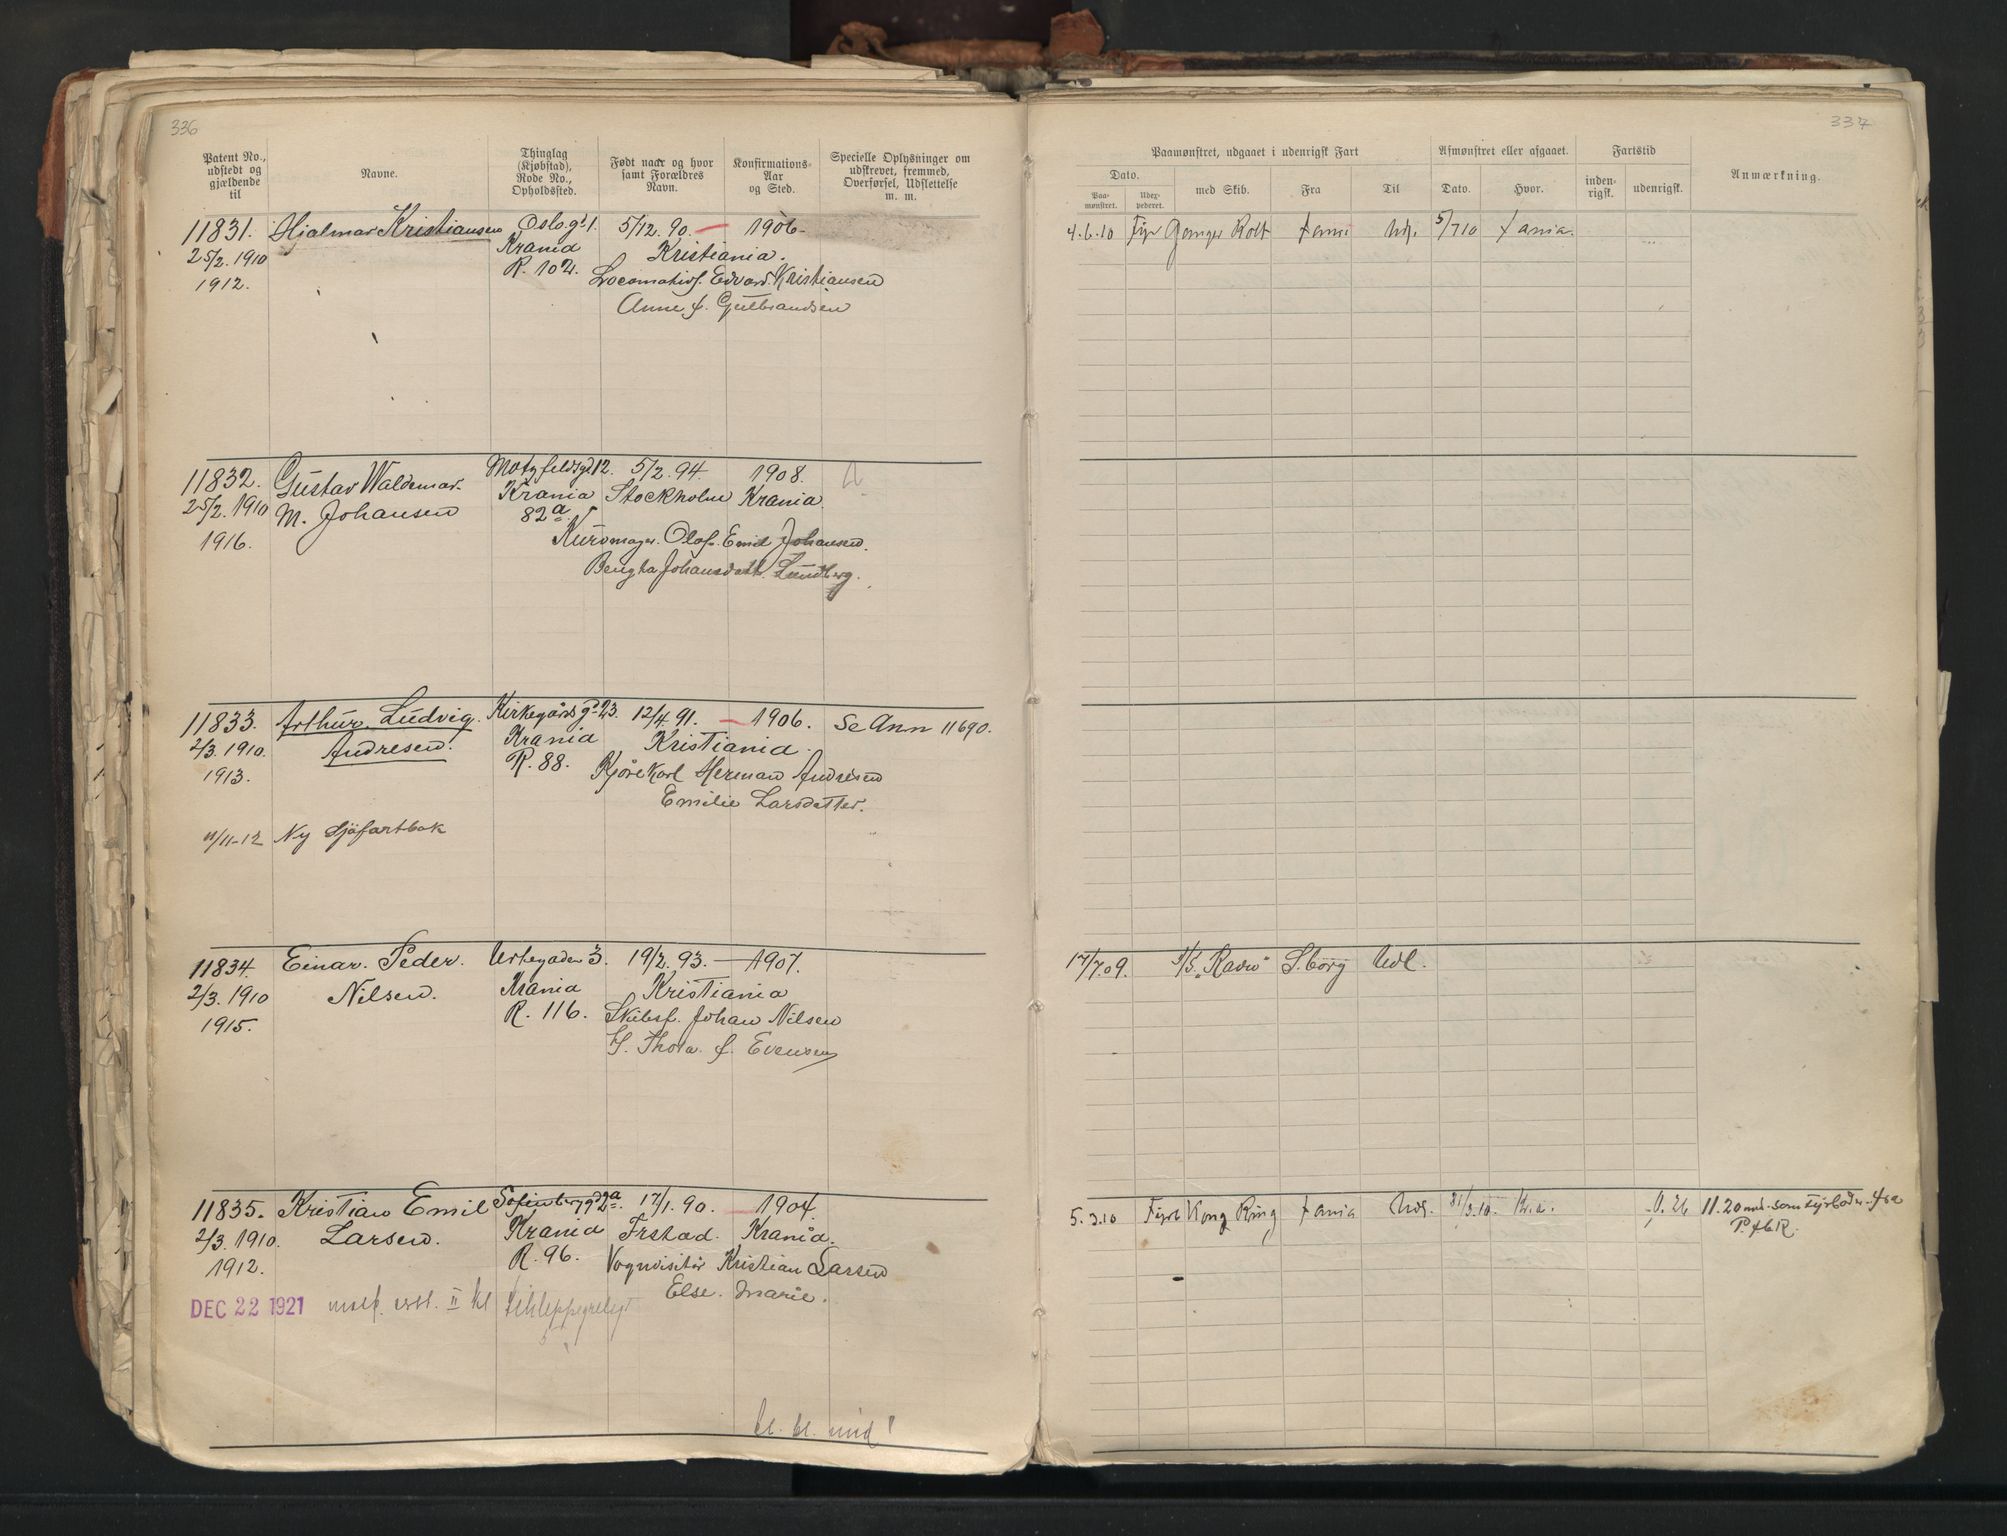 336
Patent No., udstedt og gjældende til
Navne.
Thinglag (Kjøbstad), Rode No., Opholdssted.
Født naar og hvor samt Forældres Navn.
Konfirmations-Aar og Sted.
Specielle Oplysninger om udskrevet, fremmed, Overførsel, Udslettelse m. m.
11831. Hjalmar Kristiansen Oslogt 1. 5/12. 90. — 1906.
25/2. 1910 Krania Kristiania.
1912. R. 102. Locomotivf. Edvard Kristiansen
Anne f. Gulbrandsen
11832. Gustav Waldemar Motzfeldsgd 12. 5/2. 94. 1908.
25/2. 1910 M. Johansen Krania Stockholm Krania.
1916. 82a
Kurvmager. Olof Emil Johansen.
Bengta Johansdatt. Lundberg.
11833. Arthur Ludvig Kirkegårdsgd 23. 12/4. 91. — 1906. Se Ann 11690.
2/3. 1910. Andresen. Krania Kristiania.
1913. R. 88. Kjørekarl Herman Andresen
Emilie Larsdatter.
11/11-12 Ny Sjøfartbok
11834. Einar Peder Urtegaden 3. 19/2. 93. — 1907.
2/3. 1910 Nilsen. Krania Kristiania
1915. R. 116. Skibsf. Johan Nilsen
Thora f. Evensen
11835. Kristian Emil Sofienberggd 2a. 17/1. 90. — 1904.
2/3. 1910. Larsen. Krania Frstad. Krania.
1912. R. 96. Vognvisitør Kristian Larsen
Else Marie.
DEC 22 1921 II kl
337
Paamønstret, udgaaet i udenrigsk Fart
Afmønstret eller afgaaet.
Fartstid
Anmærkning.
Dato.
Paa-mønstret.
Udex-pederet.
med Skib.
Fra
Til
Dato.
Hvor.
inden-rigsk.
udenrigsk.
4.6.10 Fyr Ganger Rolf Xania Udl. 5/7 10 Xania.
17/7.09. S/S "Ravn" S.borg Udl.
5.3.10 Fyrb Kong Ring Xania Udl. 31/3.10. Kr.a. 0. 26 11.20 md. som fyrbøder